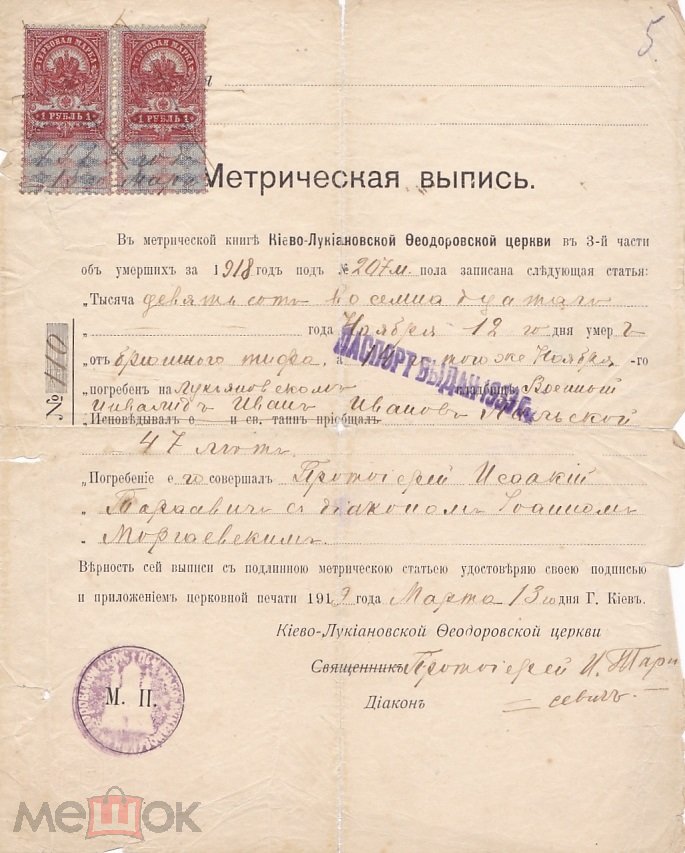 5.
ГЕРБОВАЯ МАРКА ГЕРБОВАЯ МАРКА
1 РУБЛЬ 1 1 РУБЛЬ 1
Метрическая выпись.
Въ метрической книгѣ Кіево-Лукіановской Ѳеодоровской церкви въ 3-й части
объ умершихъ за 1918 годъ подъ № 207 м. пола записана слѣдующая статья:
„Тысяча девятьсотъ восемнадцатаго
„ года Ноября 12 го дня умеръ
„отъ брюшного тифа, а тогоже Ноября -го
„погребенъ на Лукьяновскомъ кладбищѣ Военный
Инвалидъ Иванъ Ивановъ
„Исповѣдывалъ е и св. таинъ пріобщалъ
47 лѣтъ.
„Погребеніе его совершалъ Протоіерей Исаакій
„Тарасевичъ съ діакономъ Іоанномъ
„Моргаевскимъ.
ПАСПОРТ ВЫДАН
№ 110
Вѣрность сей выписи съ подлинною метрическою статьею удостовѣряю своею подписью
и приложеніемъ церковной печати 1919 года Марта 13 го дня Г. Кіевъ.
Кіево-Лукіановской Ѳеодоровской церкви
Священникъ Протоіерей И. Тара
севичъ
Діаконъ
М. П.
мешок